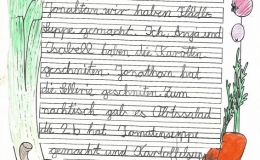 Jonathan wir haben
Suppe gemacht. Ich, Anja und
haben die Karotten
geschniten. Jonathan hat
die Sellerie geschniten. Zum
nachtisch gab es Obstsalad
die 2b hat Tomatensuppe
gemacht und